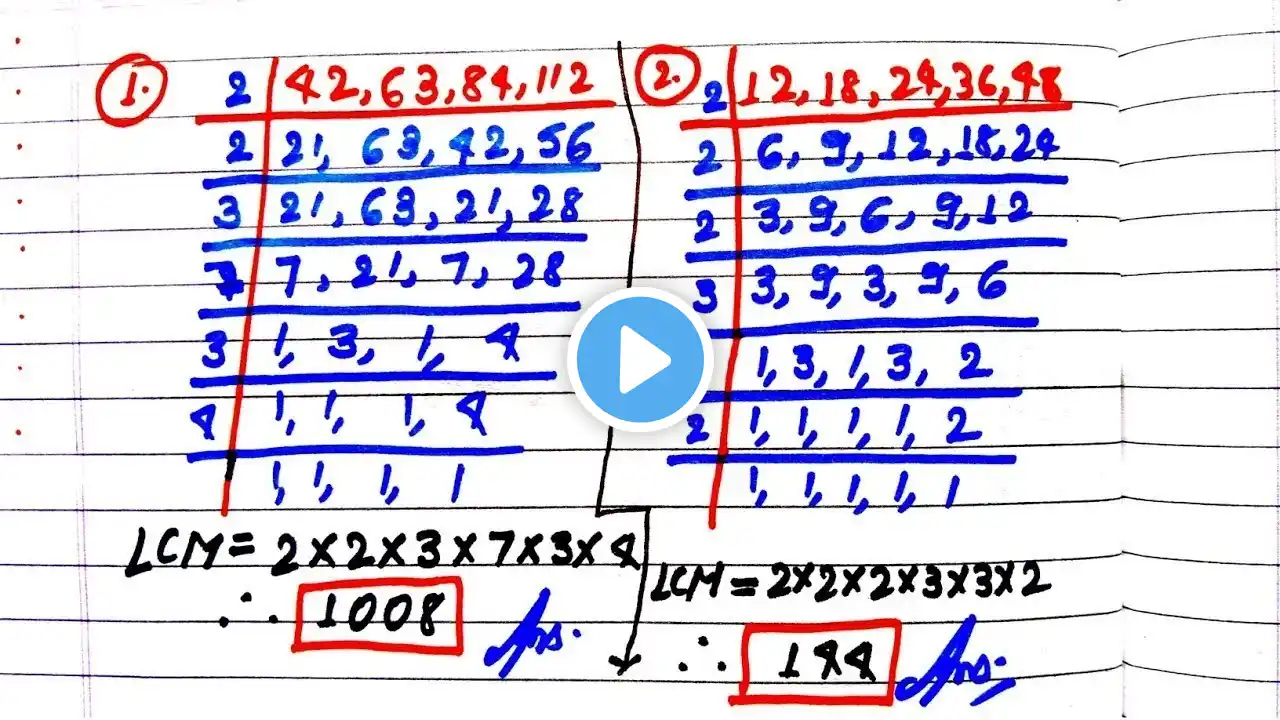 1.
2 42, 63, 84, 112
2 21, 63, 42, 56
3 21, 63, 21, 28
7 7, 21, 7, 28
3 1, 3, 1, 4
4 1, 1, 1, 4
1, 1, 1, 1
LCM = 2×2×3×7×3×4
∴ 1008 Ans.
2.
2 12, 18, 24, 36, 48
2 6, 9, 12, 18, 24
2 3, 9, 6, 9, 12
3 3, 9, 3, 9, 6
1, 3, 1, 3, 2
2 1, 1, 1, 1, 2
1, 1, 1, 1, 1
LCM = 2×2×2×3×3×2
∴ 144 Ans.